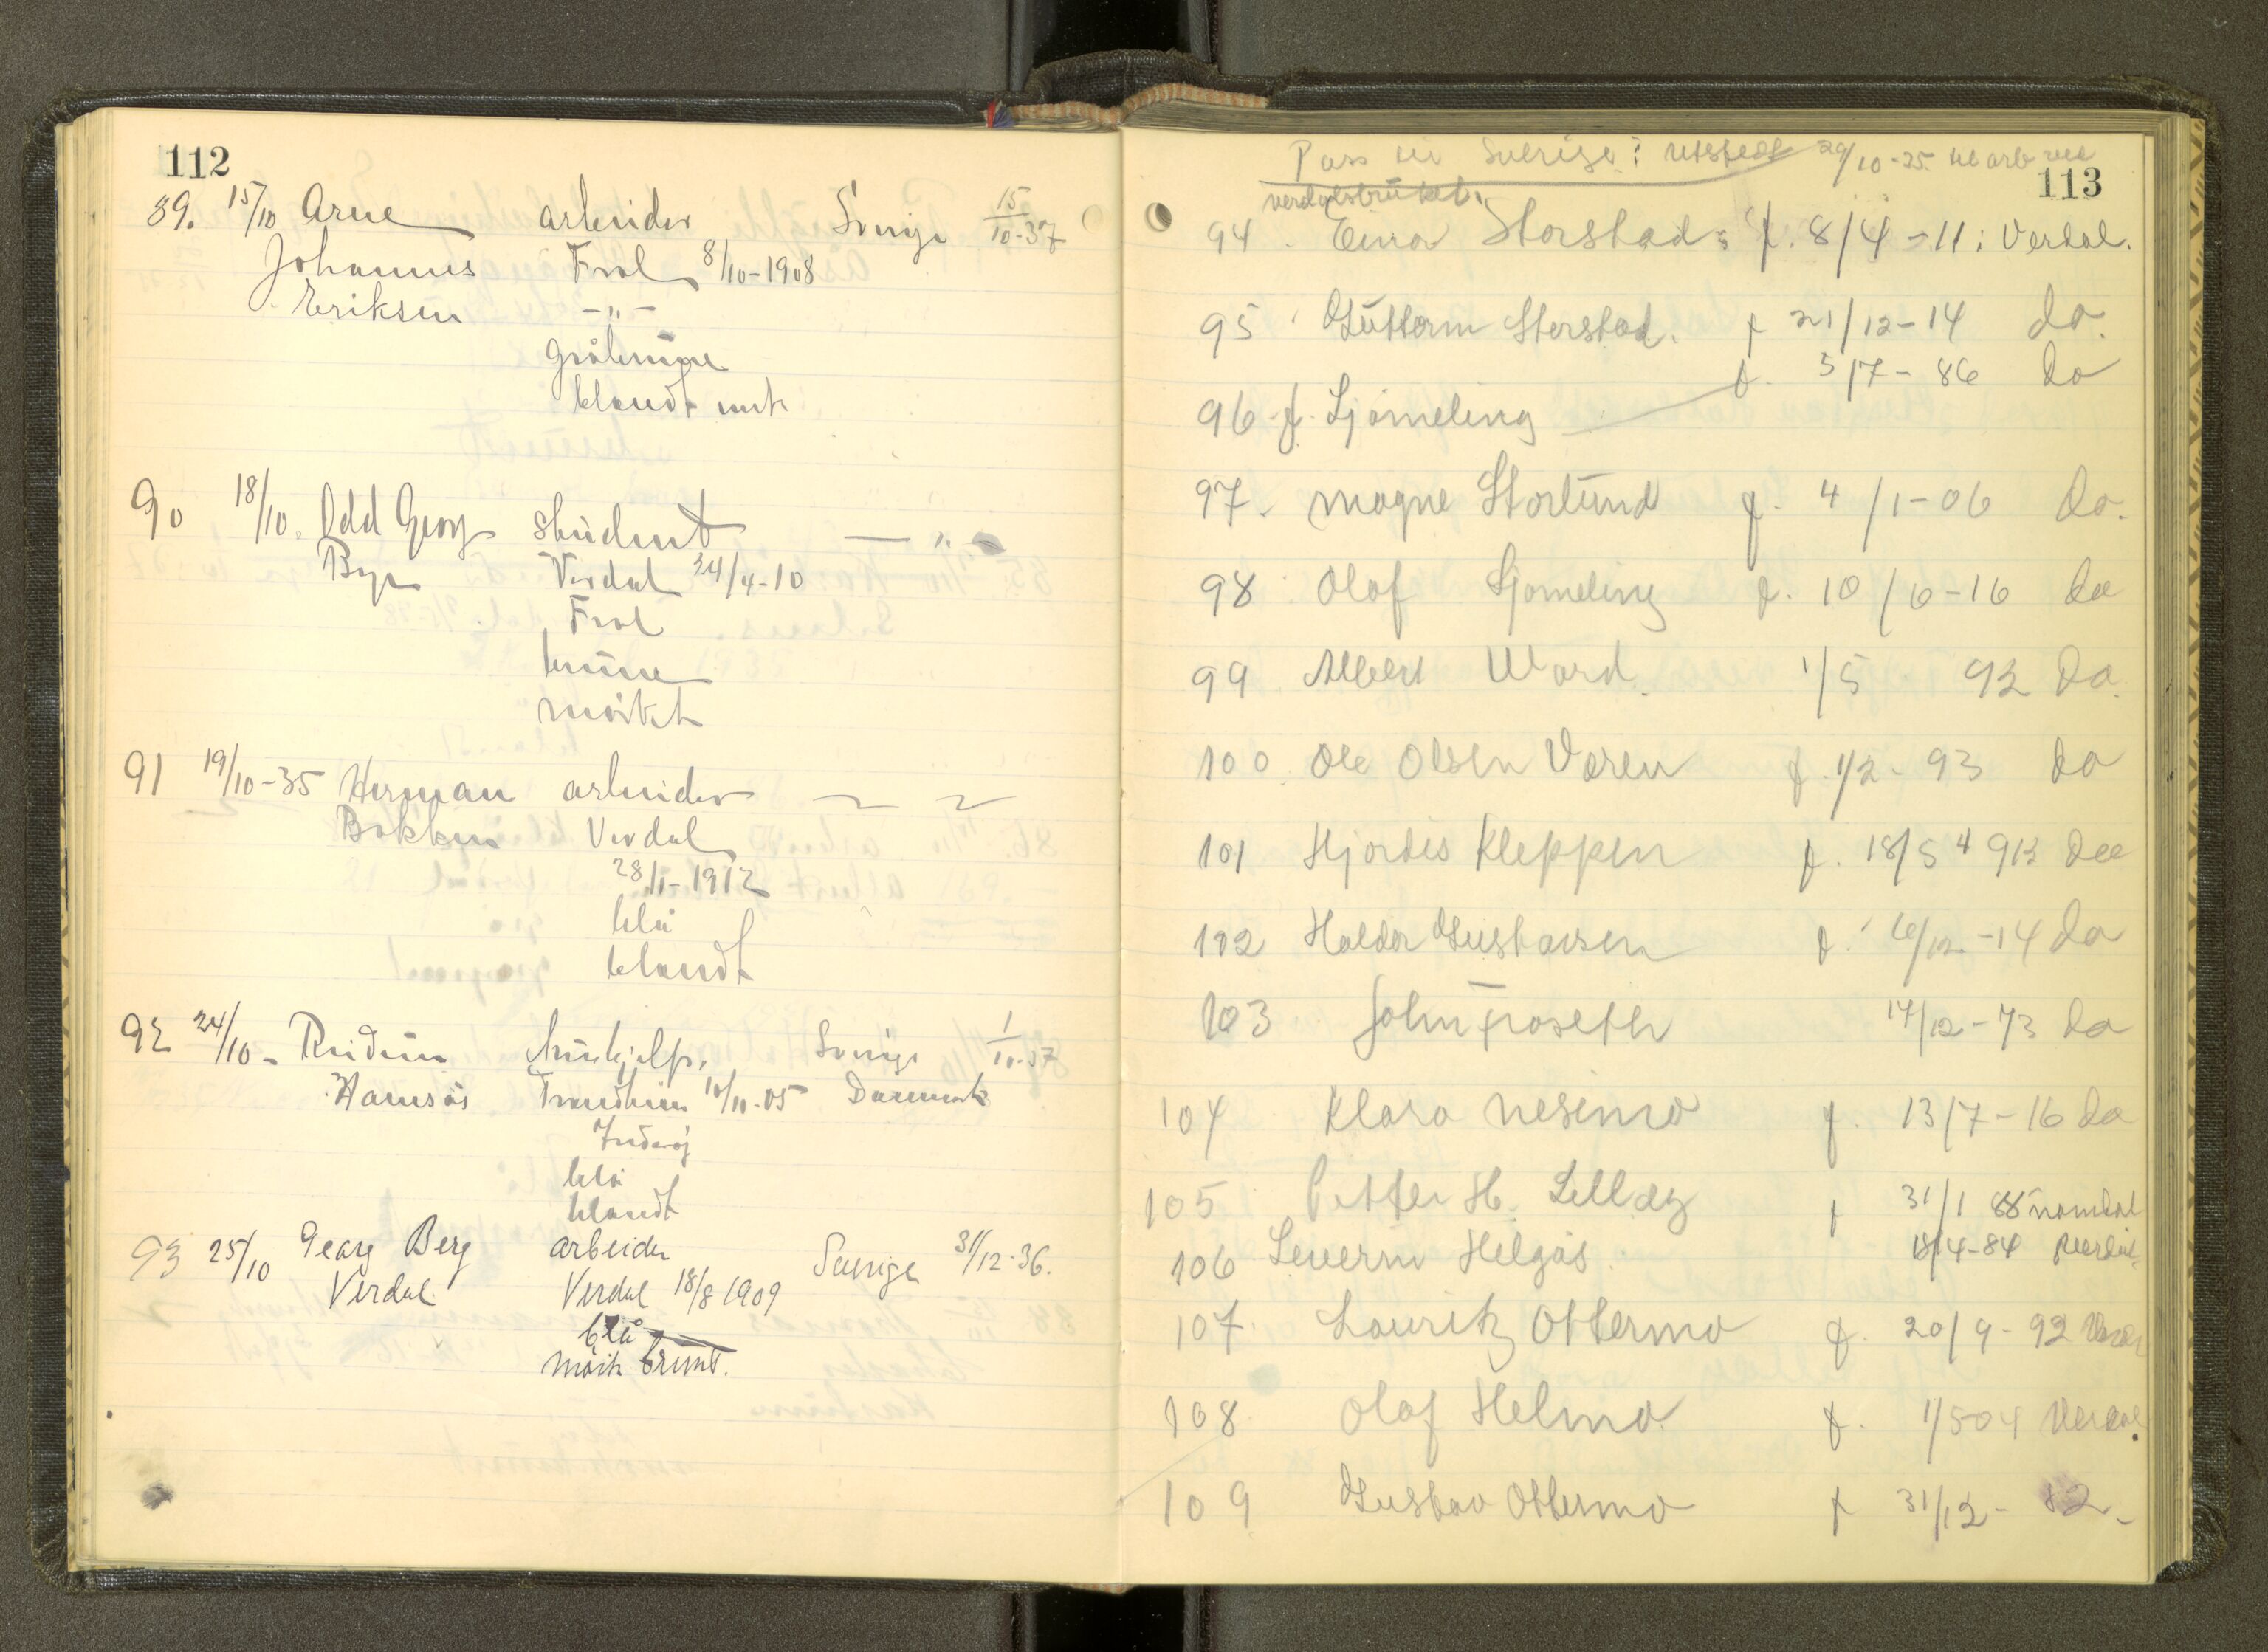 112
89. 15/10 Arne arbeider Sverige 15/10-37
Johannes Frol 8/10-1908
Eriksen -"-
gråbrune
blandt mrk
90 18/10. Odd Georg student — " —
Bye Verdal 24/4-10
Frol
brune
mørkt
91 19/10-35 Herman arbeider
Bakken Verdal
28/1-1912
blå
blandt
92 24/10- Reidun Sverige 1/10-37
Hamsås Trondheim 10/11-05 Danmark
Inderøy
blå
blandt
93 25/10 Georg Berg arbeider Sverige 31/12-36.
Verdal Verdal 18/8 1909
blå
mørk brunt.
Pass til Sverige: utstedt 29/10-35 til arb ved
113
verdalsbruket.
94. Einar Storstad: f. 8/4-11: Verdal.
95 Guttorm Storstad. f 21/12-14 do.
f. 5/7-86 do
96 J. Sjømeling
97. Magne Storlund f. 4/1-06 do.
98 Olaf Sjømeling f. 10/6-16 do
99 Albert Ward. 1/5 92 do.
100 Ole Olsen Væren f. 1/2-93 do
101 Hjordis Kleppen f. 18/5 913 do
102 Haldor Gustavsen f. 6/12-14 do
103 John Froseth 14/12-73 do
104 Klara Nesimo f. 13/7-16 do
105 Petter H. f 31/1 88 namdal
106 Helgås. 18/4-84 Verdal.
107. Lauritz Ottermo f. 20/9-92
108 Olaf Helmo f. 1/5-04 Verdal.
109 Gustav Ottermo f 31/12-82-